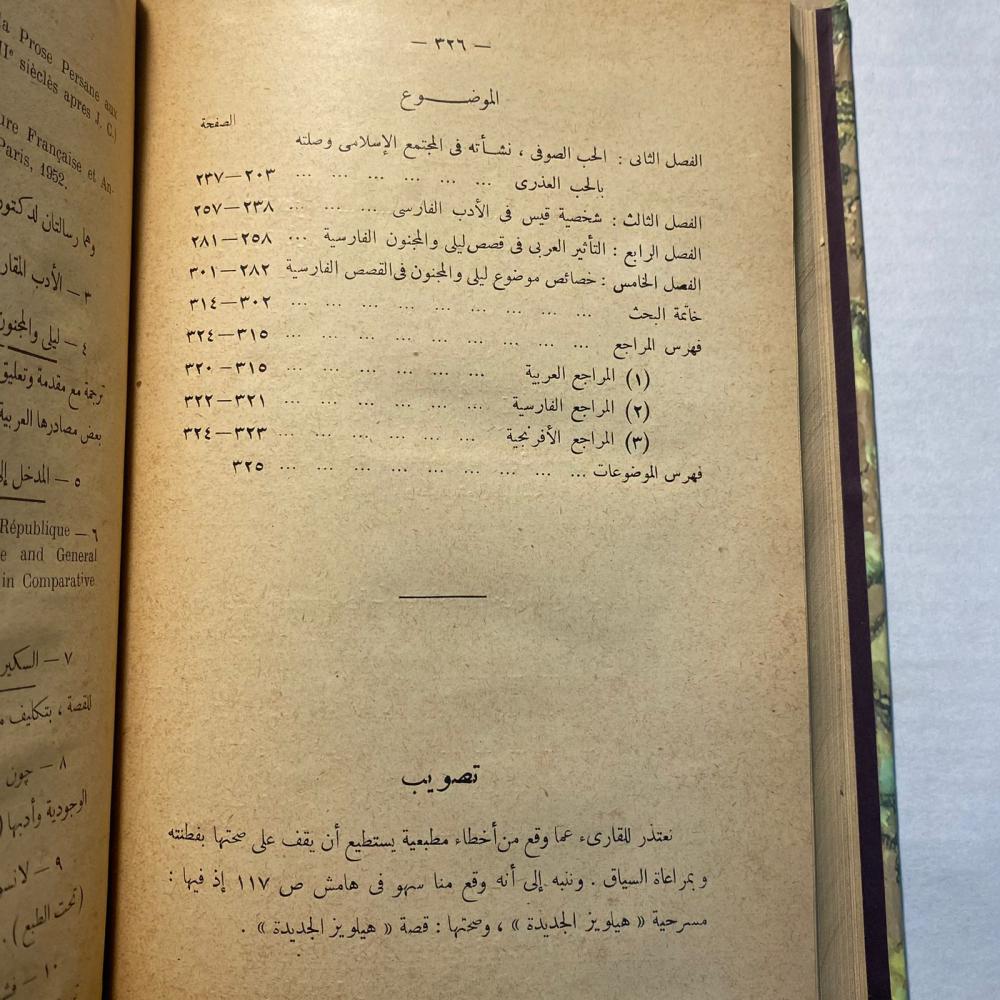 — ٣٢٦ —
الموضـــوع
الصفحة
الفصل الثانى : الحب الصوفى ، نشــأته فى المجتمع الإسلامى وصلته
بالحب العذرى ... ... ... ... ... ... ٢٠٣—٢٣٧
الفصل الثالث : شخصية قيس فى الأدب الفارسى ... ... ... ٢٣٨—٢٥٧
الفصل الرابع : التأثير العربى فى قصص ليلى والمجنون الفارسية ... ٢٥٨—٢٨١
الفصل الخامس : خصائص موضوع ليلى والمجنون فى القصص الفارسية ٢٨٢—٣٠١
خاتمة البحث ... ... ... ... ... ... ... ٣٠٢—٣١٤
فهرس المراجع ... ... ... ... ... ... ... ... ٣١٥—٣٢٤
(١) المراجع العربية ... ... ... ... ... ... ٣١٥—٣٢٠
(٢) المراجع الفارسية ... ... ... ... ... ... ٣٢١—٣٢٢
(٣) المراجع الأفرنجية ... ... ... ... ... ... ٣٢٣—٣٢٤
فهرس الموضوعات ... ... ... ... ... ... ... ... ٣٢٥
تصويب
نعتذر للقارىء عما وقع من أخطاء مطبعية يستطيع أن يقف على صحتها بفطنته
وبمراعاة السياق . وننبه إلى أنه وقع منا سهو فى هامش ص ١١٧ إذ فيها :
مسرحية « هيلويز الجديدة » ، وصحتها : قصة « هيلويز الجديدة » .
la Prose Persane aux
siècles après J. C.)
Française et An-
Paris, 1952.
وهما رسالتان
٣ — الأدب
٤ — ليلى والمجنون
ترجمة مع مقدمة وتعليق
بعض مصادرها العربية
٥ — المدخل
٦ — République
and General
in Comparative
٧ — السكير
للقصة ، بتكليف
٨ — چون
الوجودية وأدبها
٩ —
(تحت الطبع) .
١٠ —